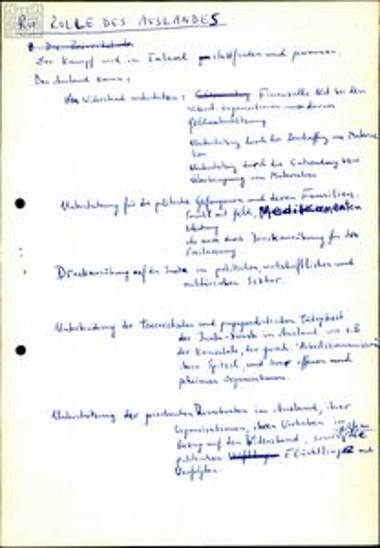 ROLLE DES AUSLANDES
Der Kampf wird im Inland stattfinden und gewonnen.
Das Ausland kann:
den Widerstand unterstützen: Finanzielle Hilfe bei den
Widerst. Organisationen und deren
Unterstützung durch der Beschaffung von Material
Unterstützung durch die Entsendung bzw
von Materialien
Unterstützung für die politische Gefangenen und deren Familien.
Sowohl mit Geld, Medikamenten
Kleidung
als auch durch Druckausübung für ihre
Freilassung
Druckausübung auf die Junta im politischen, wirtschaftlichen und
militärischen Sektor.
Unterbindung der terroristischen und propagandistischen Tätigkeit
der Junta-Dienste im Ausland wie z.B
der Konsulate, der griech.
ihre Spitzel, und ihrer offenen und
geheimen Organisationen.
Unterstützung der griechischen Demokraten im Ausland, ihrer
Organisationen, ihren Vorhaben im
Bezug auf den Widerstand, sowie die
politischen Flüchtlinge und
Verfolgten.